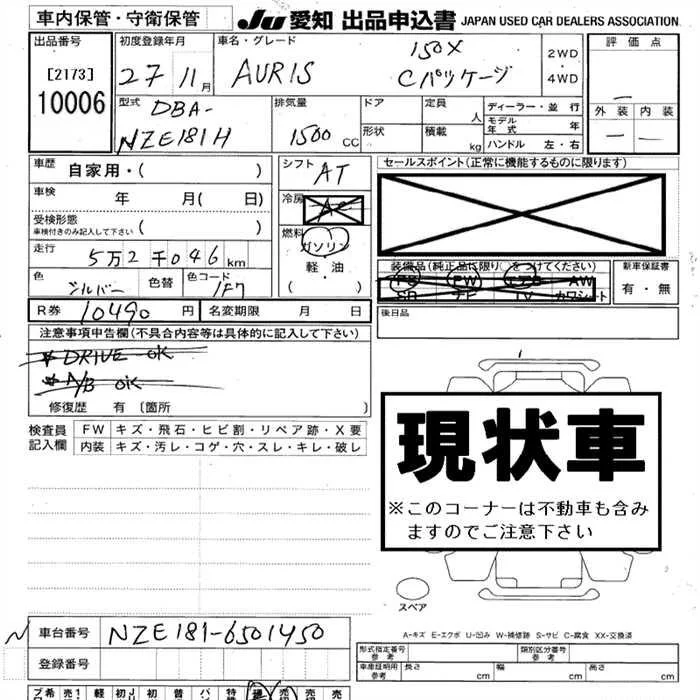 車内保管・守衛保管
JU 愛知 出品申込書 JAPAN USED CAR DEALERS ASSOCIATION.
出品番号
[2173]
10006
初度登録年月
27 11月
車名・グレード
AURIS
150X
Cパッケージ
2WD
4WD
評価点
外装 内装
型式
DBA-
NZE181H
排気量
1500 CC
ドア
形状
定員 人
積載 kg
ディーラー・並 行
モデル年式 年
ハンドル 左・右
車歴 自家用・( )
車検 年 月( 日)
受検形態
車検付きのみ記入して下さい ( )
走行 5万2千046km
色 シルバー 色替 色コード 1F7
シフト AT
冷房 AC
燃料
ガソリン
軽油
( )
セールスポイント(正常に機能するものに限ります)
装備品(純正品に限り○をつけてください)
PS PW エアB AW
SR ナビ TV カワシート
新車保証書
有・無
R券 10490円 名変期限 月 日
後日品
注意事項申告欄(不具合内容等は具体的に記入して下さい)
* DRIVE OK
* A/B OK
修復歴 有 〔箇所 〕
検査員記入欄
FW キズ・飛石・ヒビ割・リペア跡・X要
内装 キズ・汚レ・コゲ・穴・スレ・キレ・破レ
現状車
※このコーナーは不動車も含み
ますのでご注意下さい
スペア
A-キズ E-エクボ U-凹み W-補修跡 S-サビ C-腐食 XX-交換済
車台番号 NZE181-6501450
登録番号
型式指定番号 参考
類別区分番号 参考
車庫証明用 参考 長さ cm 幅 cm 高さ cm